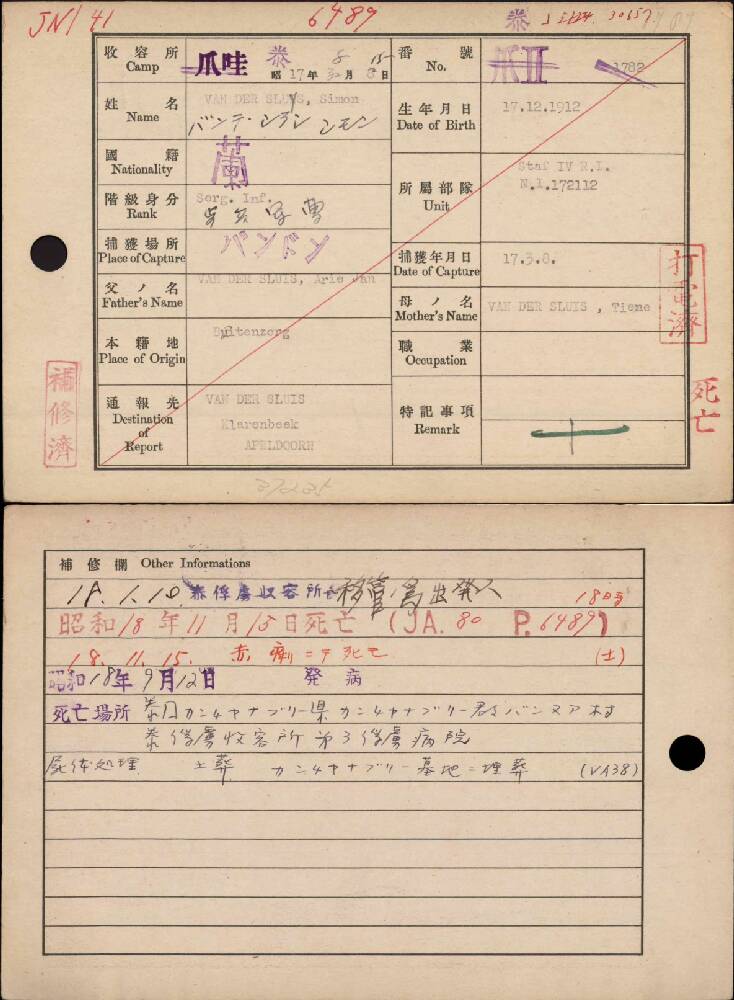 JN 141
6489
泰
30657
收容所 Camp
爪哇 泰
昭17年 月 8日
番號 No.
爪II 1782
姓名 Name
VAN DER SLUYS, Simon
生年月日 Date of Birth
17.12.1912
國籍 Nationality
蘭
階級身分 Rank
Serg. Inf.
所屬部隊 Unit
Staf IV R.I.
N.I.172112
捕獲場所 Place of Capture
バンドン
捕獲年月日 Date of Capture
17.3.8.
父ノ名 Father's Name
VAN DER SLUIS, Arie Jan
母ノ名 Mother's Name
VAN DER SLUIS , Tieme
本籍地 Place of Origin
Buitenzorg
職業 Occupation
通報先 Destination of Report
VAN DER SLUIS
Klarenbeek
APELDOORN
特記事項 Remark
補修濟
打電濟
死亡
補修欄 Other Informations
18.1.10. 泰俘虜収容所ヘ移管ノ為出発
昭和18年11月15日死亡 (JA.80 P.6489)
18.11.15. 赤痢ニテ死亡 (土)
昭和18年9月12日 発病
死亡場所 泰国カンチャナブリー県カンチャナブリー郡バンヌア村
泰俘虜收容所第3俘虜病院
屍体処理 土葬 カンチャナブリー墓地ニ埋葬 (VA38)